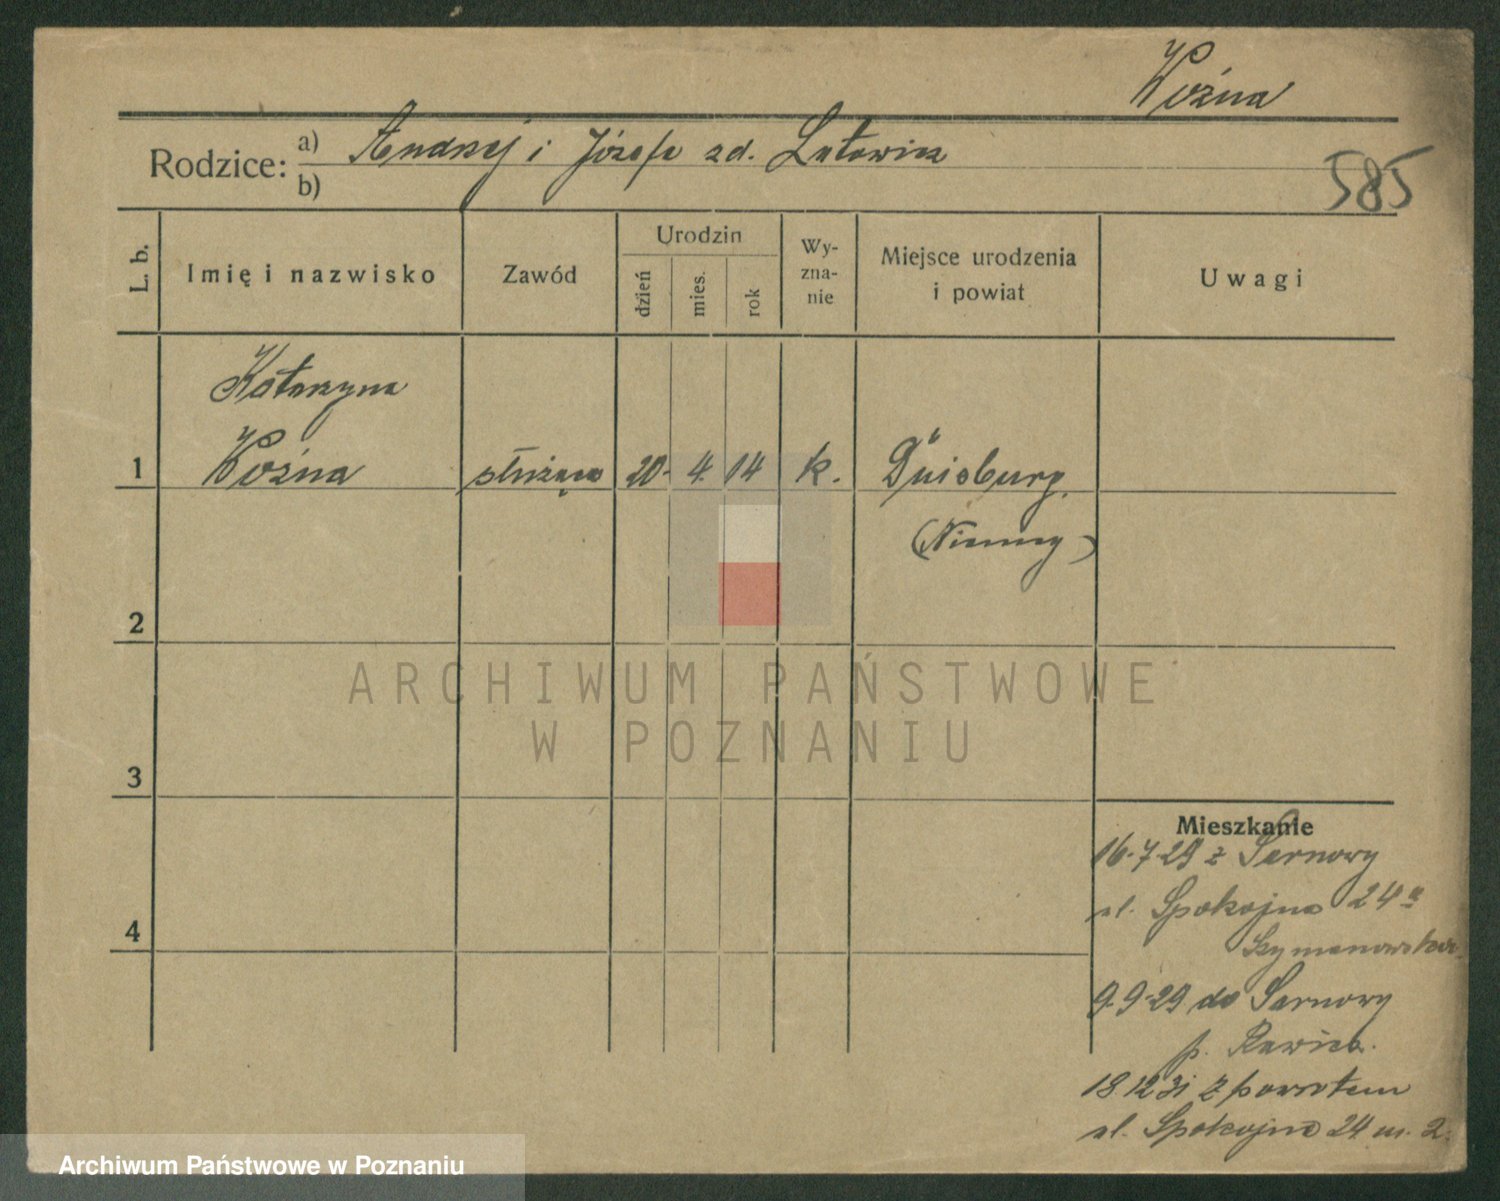 Woźna
Rodzice: a) Andrzej i Józefa zd. Latowicz
b)
585
L. b.
Imię i nazwisko
Zawód
Urodzin
dzień
mies.
rok
Wy-
zna-
nie
Miejsce urodzenia
i powiat
Uwagi
Katarzyna
1 Woźna służąca 20. 4. 14 k. Duisburg.
(Niemcy)
2
3
4
Mieszkanie
16.7.29 z Sarnowy
ul. Spokojna 24
Szymanowska
9.9.29 do Sarnowy
p. Rawicz.
18.12.31 z powrotem
ul. Spokojna 24 m. 2.
ARCHIWUM PAŃSTWOWE
W POZNANIU
Archiwum Państwowe w Poznaniu